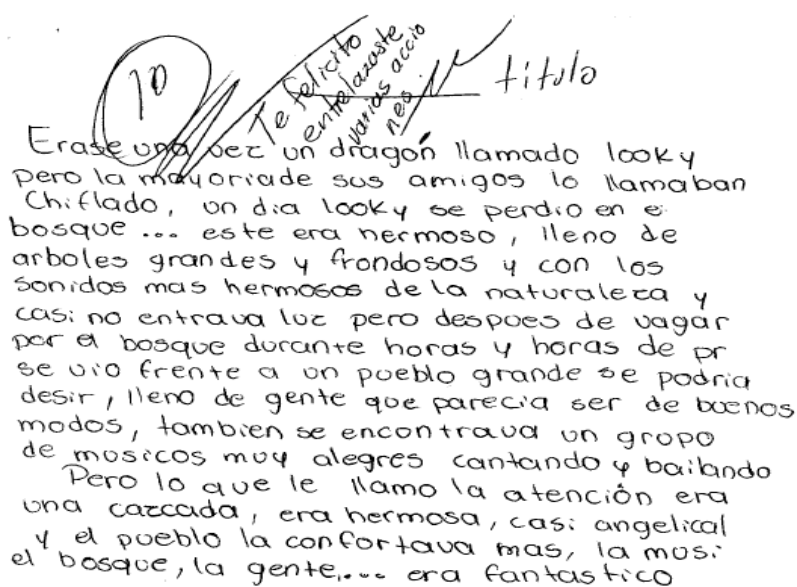 10
Te felicito
entrelazaste
varias accio
nes.
título
Erase una vez un dragón llamado looky
pero la mayoriade sus amigos lo llamaban
Chiflado, un dia looky se perdio en e
bosque ... este era hermoso, lleno de
arboles grandes y frondosos y con los
sonidos mas hermosos de la naturaleza y
casi no entrava luz pero despues de vagar
por el bosque durante horas y horas de pr
se vio frente a un pueblo grande se podria
desir, lleno de gente que parecia ser de buenos
modos, tambien se encontrava un grupo
de musicos muy alegres cantando y bailando
Pero lo que le llamo la atención era
una cazcada, era hermosa, casi angelical
y el pueblo la confortava mas, la musi
el bosque, la gente.... era fantastico